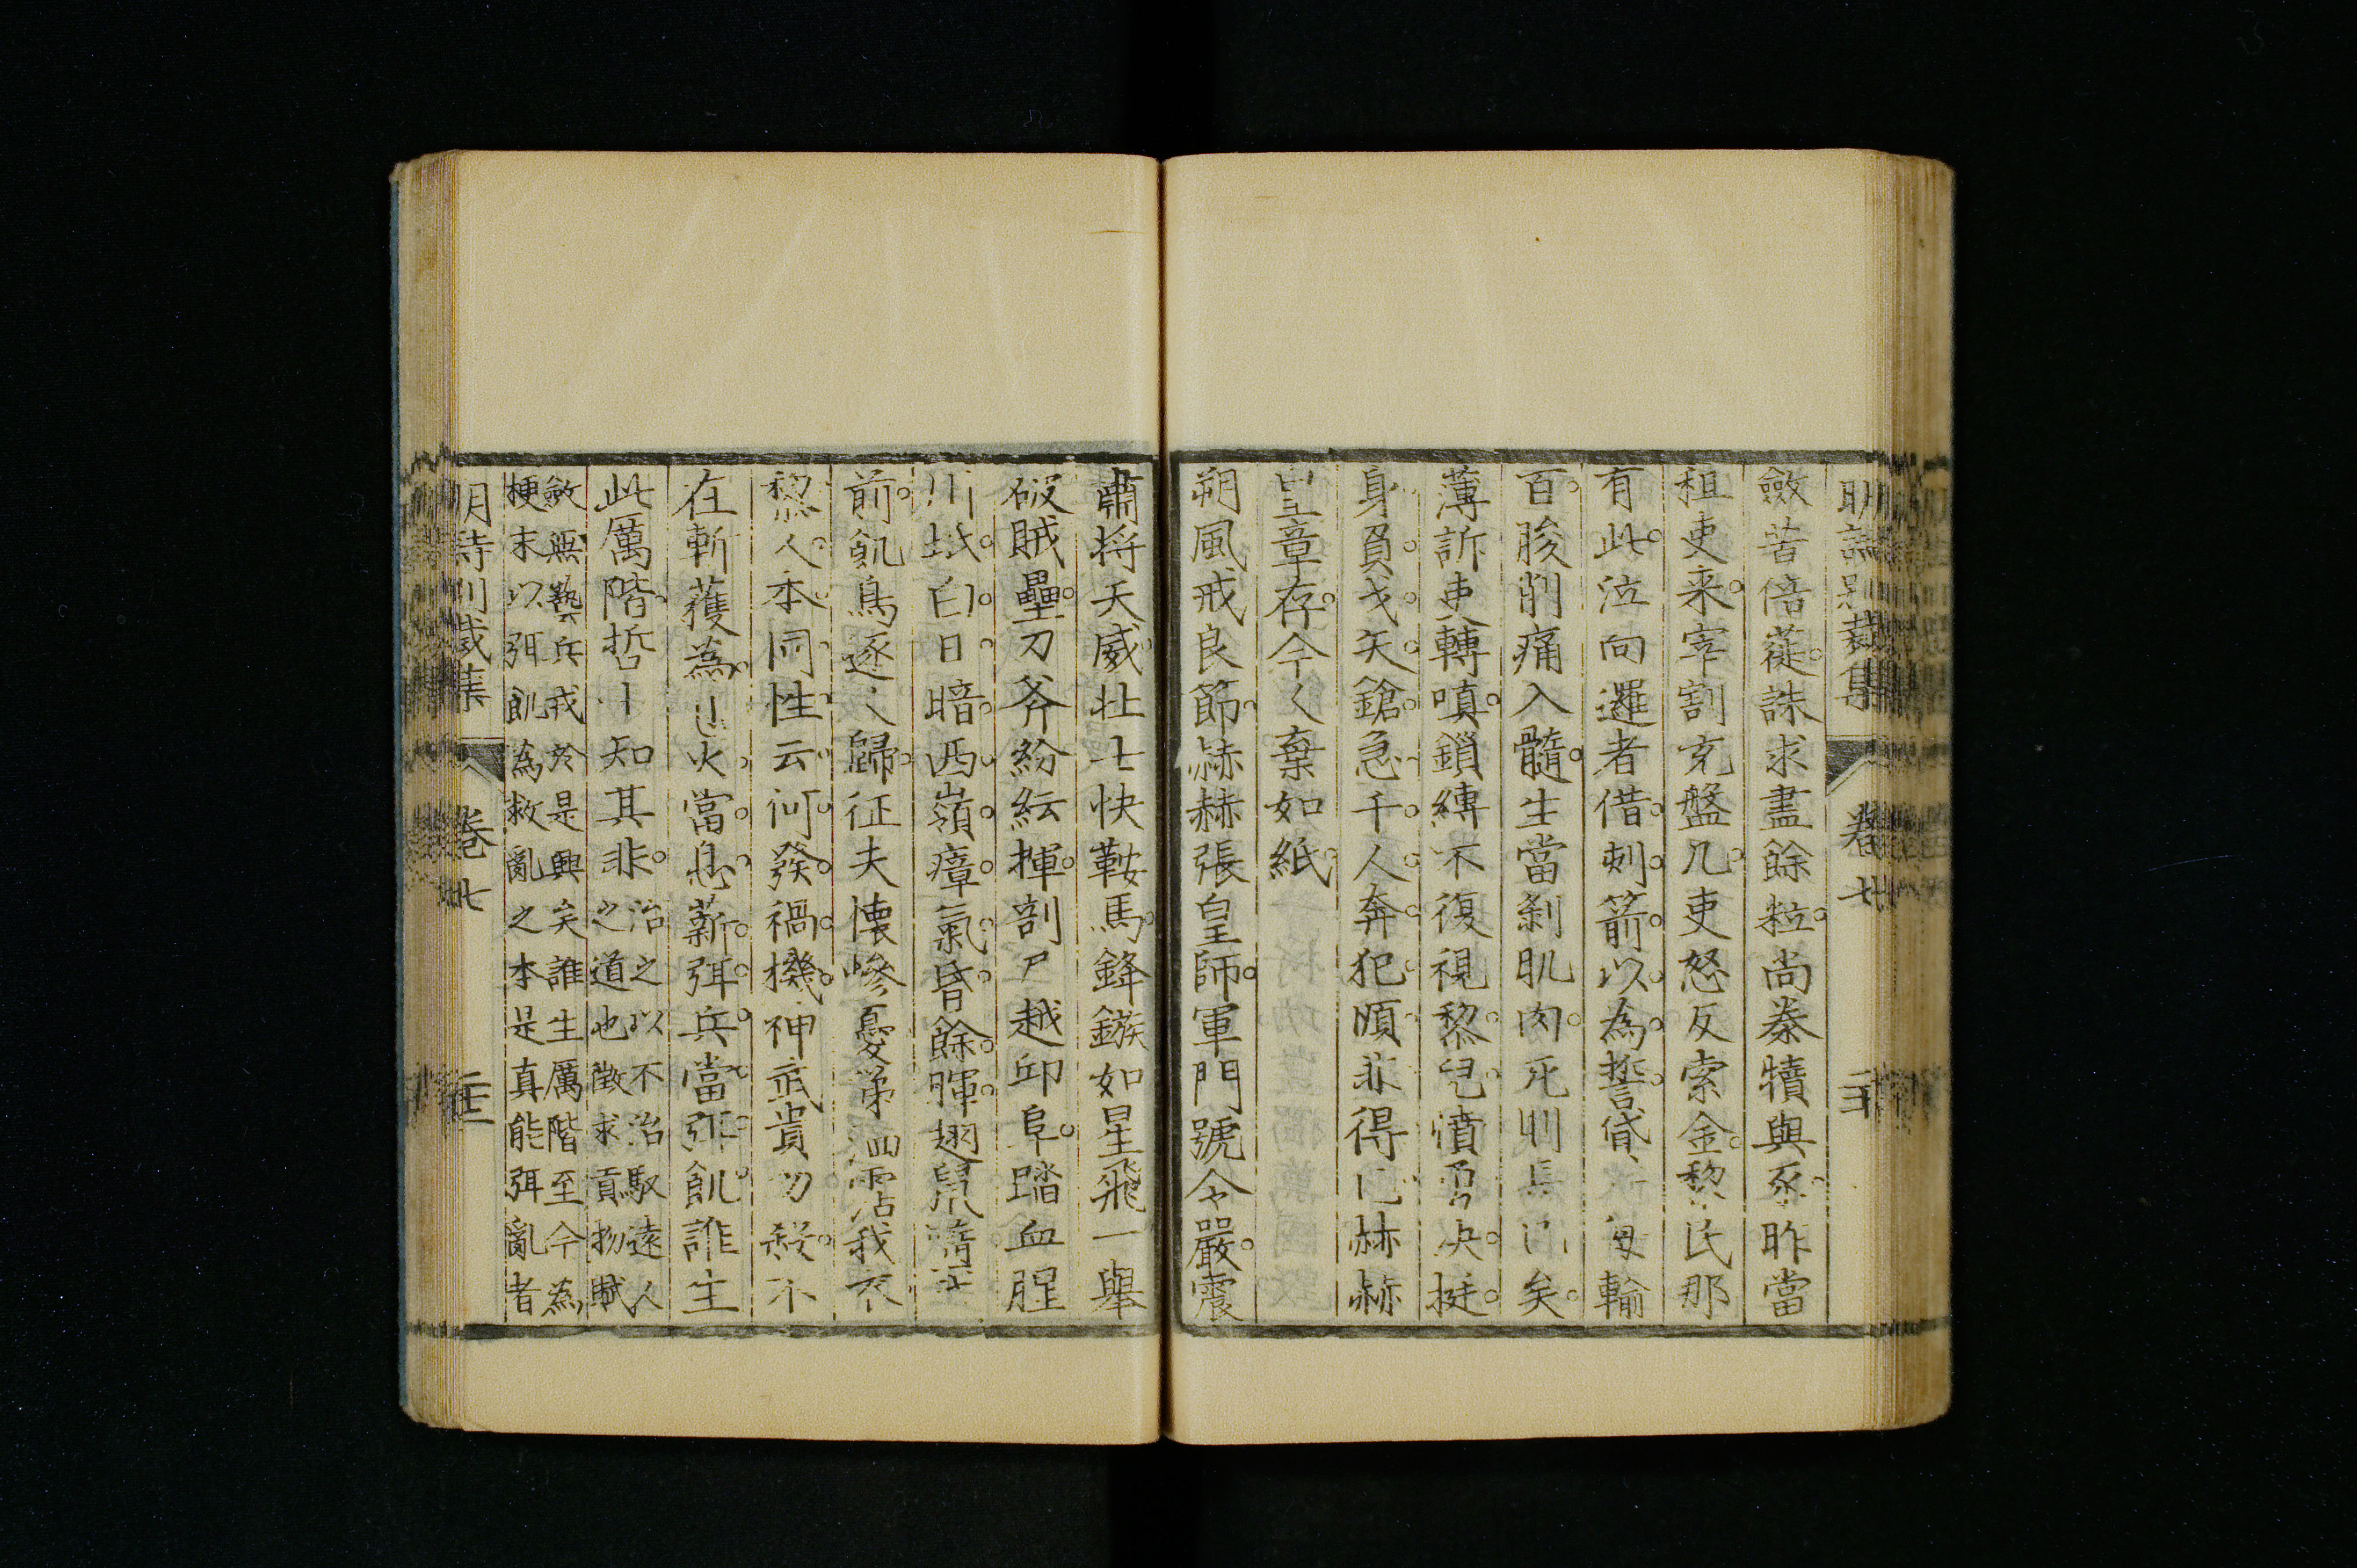 明詩別裁集 卷七
斂苦倍蓰誅求盡餘粒尚豢犢與豕昨當
租吏來宰割充盤几吏怒反索金黎民那
有此泣向邏者借刺箭以為誓貸 毎輸
百朘削痛入髓生當剝肌肉死則長已矣
薄訴吏轉嗔鎖縛不復視黎兒憤勇決挺
身負戈矢鎗急千人奔犯順非得已赫赫
皇章存今〻棄如紙
朔風戒良節赫赫張皇師軍門號令嚴震
肅將天威壯士快鞍馬鋒鏃如星飛一舉
破賊壘刀斧紛紜揮剖尸越邱阜踏血腥
川坻白日暗西嶺瘴氣昏餘暉翅鼠墮
前飢鳥逐〻歸征夫懷慘憂涕泗霑我衣
黎人本同性云何發禍機神武貴勿殺不
在斬獲為止火當息薪弭兵當弭飢誰生
此厲階哲士知其非
治之以不治馭遠人
之道也徵求貢物賦
斂無藝兵戎於是興矣誰生厲階至今為
梗末以弭飢為救亂之本是真能弭亂者
明詩別裁集 卷七